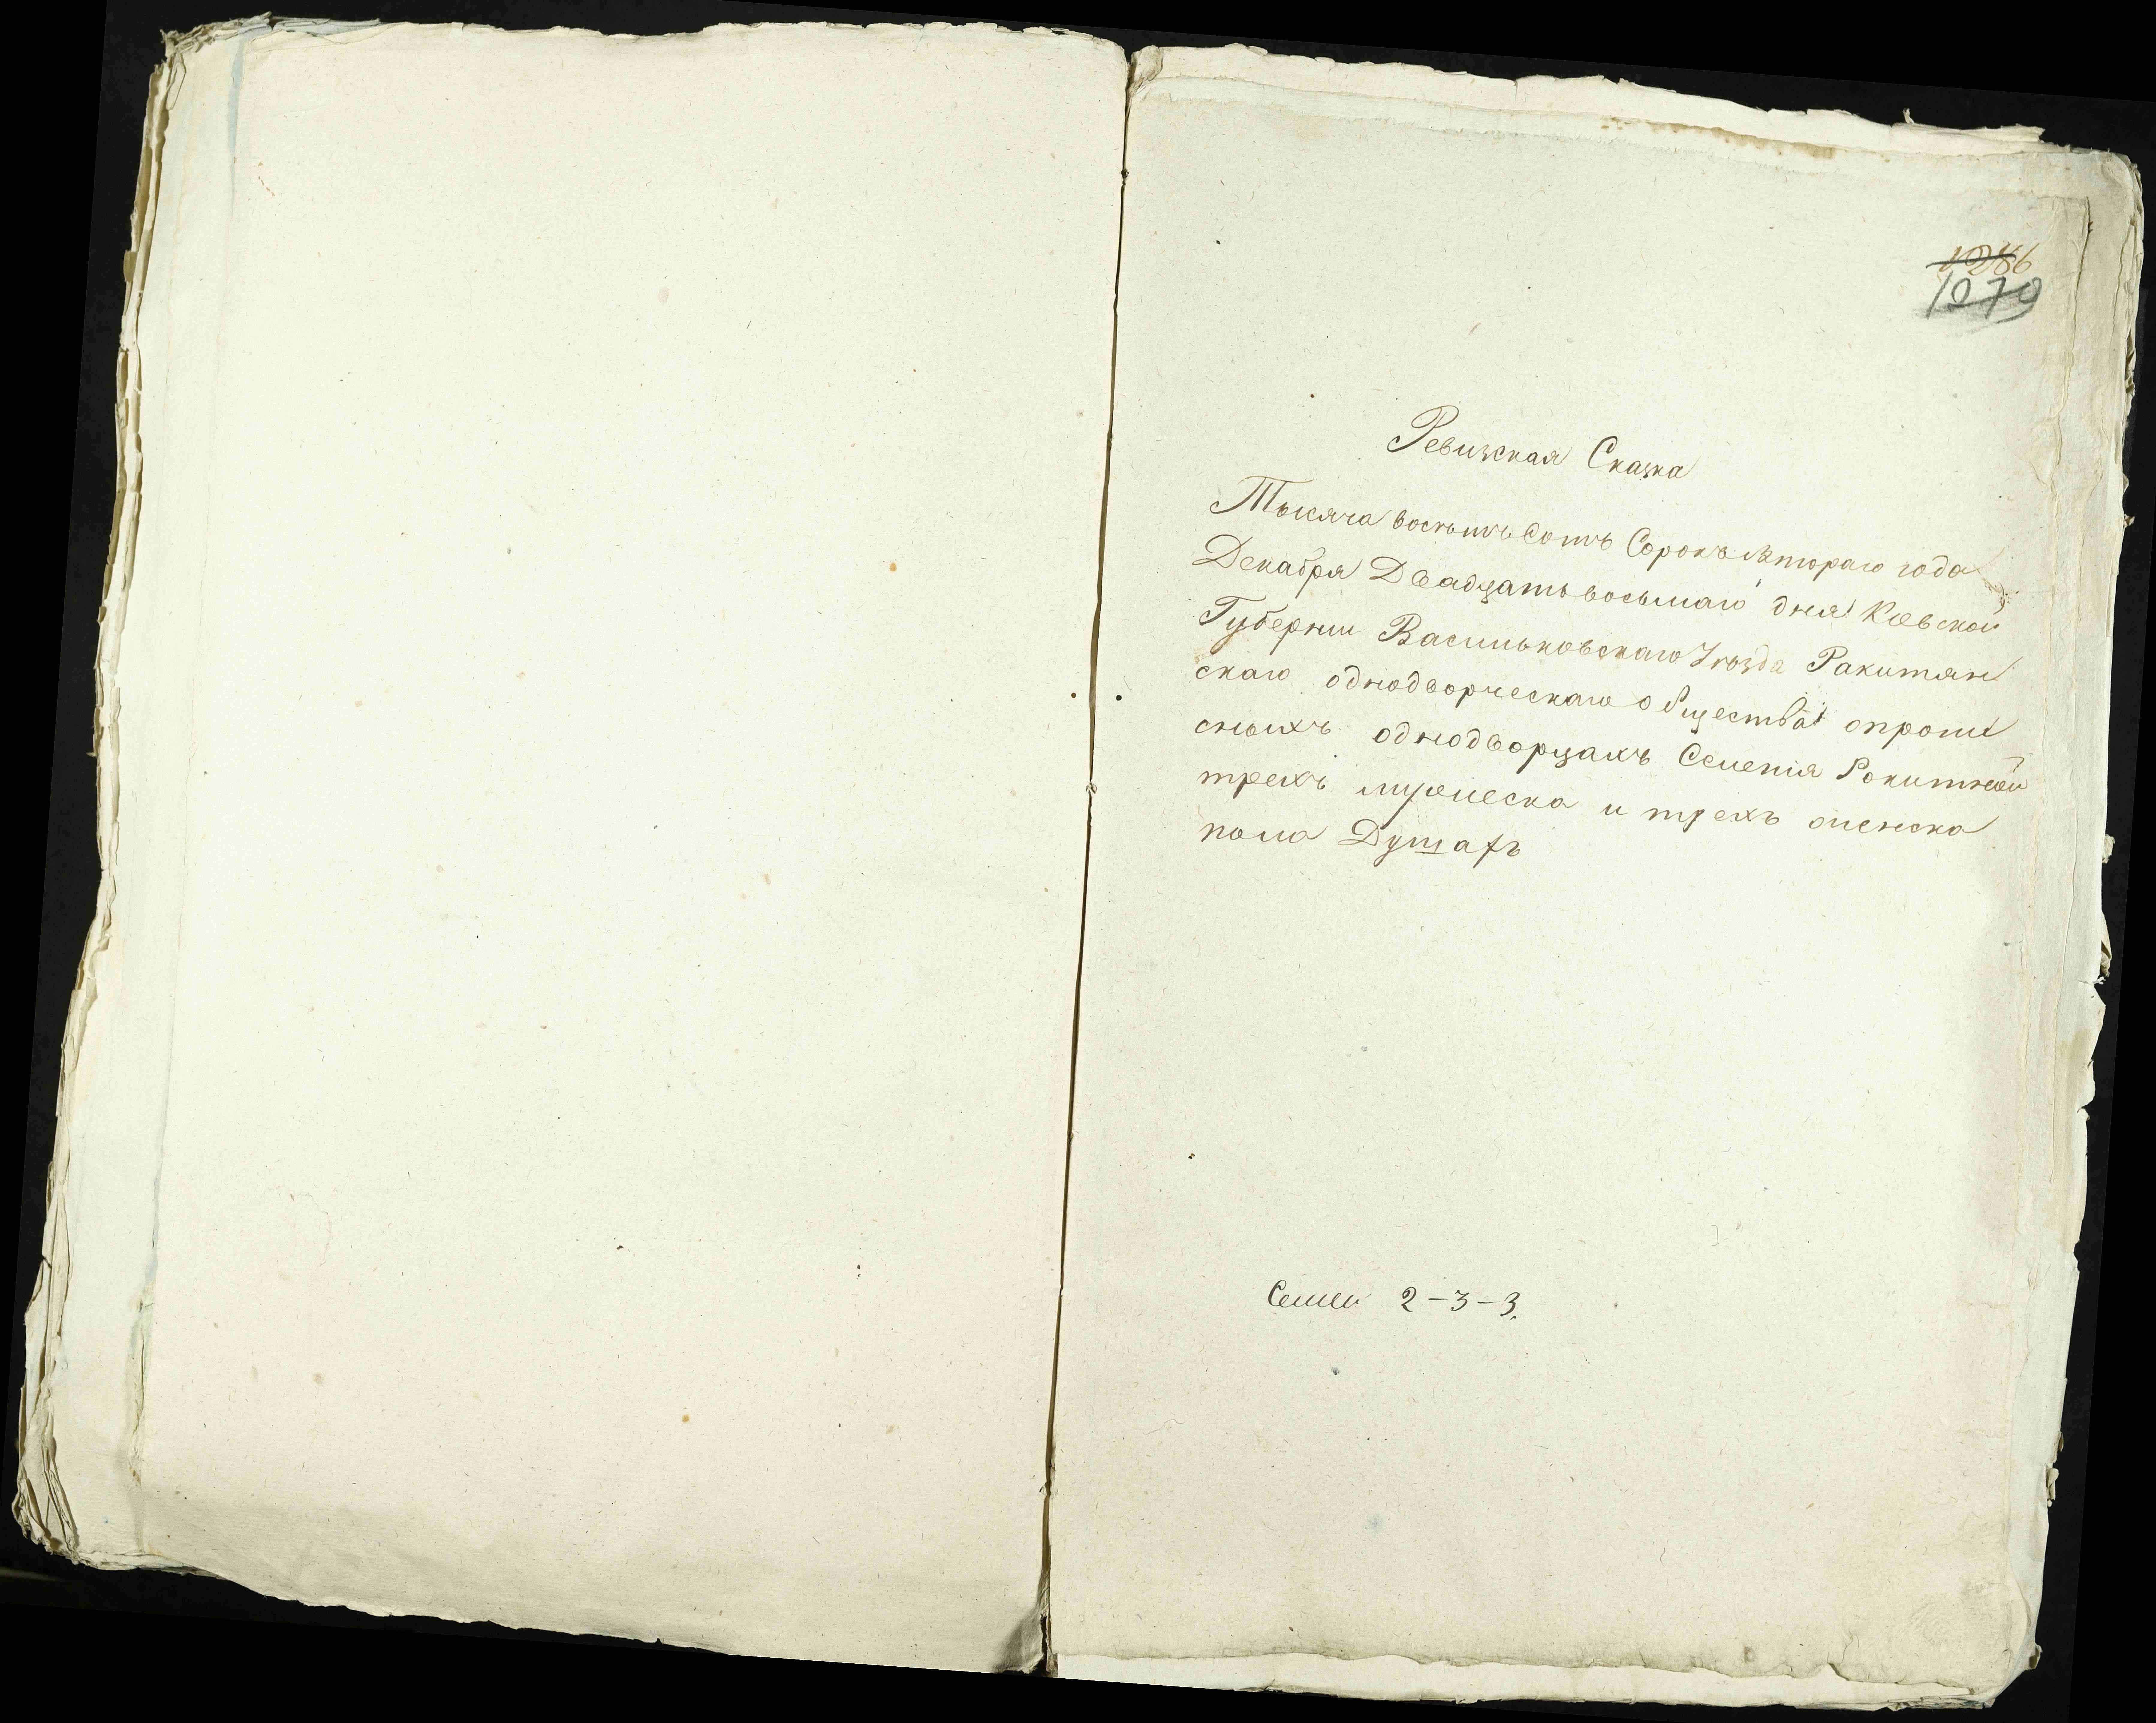 1286
1079
Ревизская Сказка
Тысяча восемь сотъ Сорокъ втораго года
Декабря Двадцать восьмаго дня Киевской
Губернии Васильковскаго Уезда Ракитян
скаго однодворческаго общества опропи
сныхъ однодворцахъ Селения Рокитной
трехъ мужеска и трехъ женска
пола Душахъ
Семей 2-3-3.